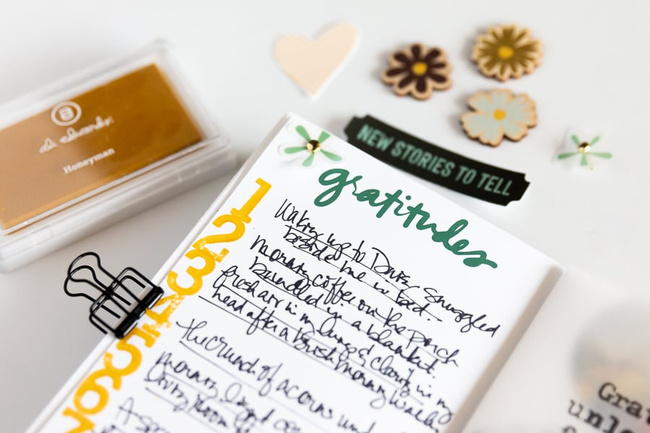 ali edwards
Honeyman
NEW STORIES TO TELL
gratitudes
1
2
3
4
5
6
Waking up to Daisy snuggled
beside me in bed.
Morning coffee on the porch
bundled in a blanket.
fresh air in my lungs & clarity in my
head after a brisk morning walk
The crunch of acorns
morning light
living room
Gra
unl